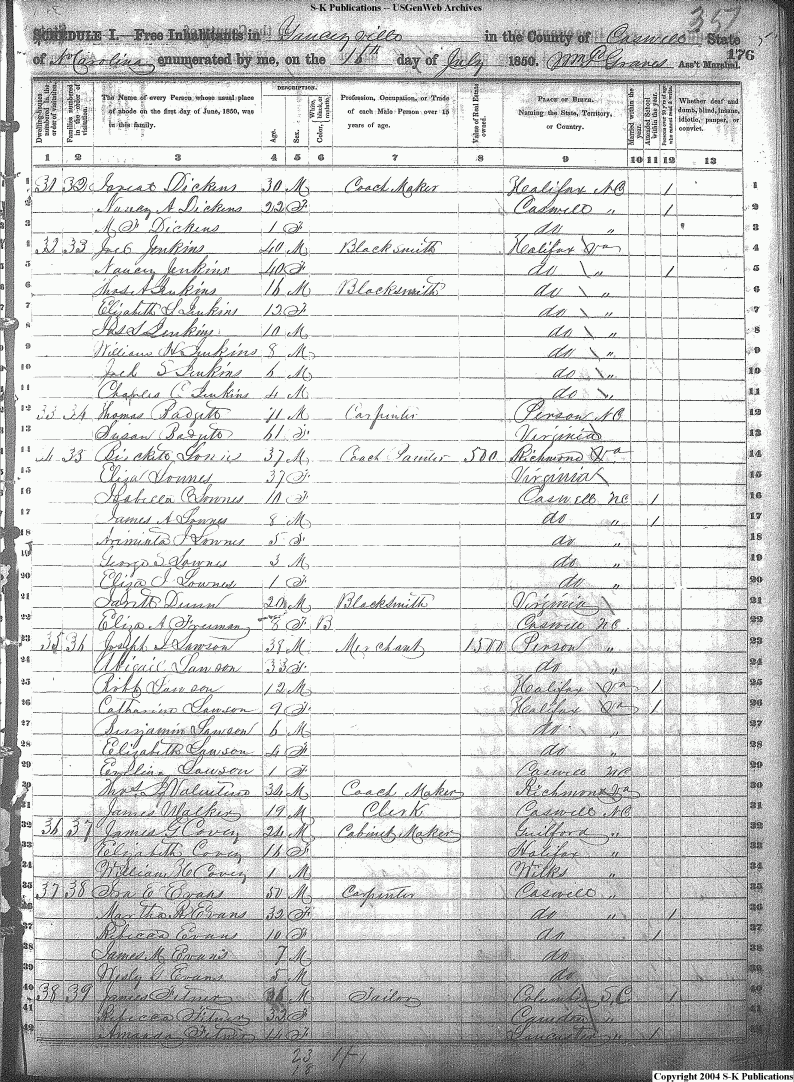 S-K Publications -- USGenWeb Archives
351
SCHEDULE I.—Free Inhabitants in Yanceyville in the County of Caswell State
of N. Carolina enumerated by me, on the 16th day of July 1850. Wm P Graves Ass't Marshal. 176
DESCRIPTION.
Dwelling-houses numbered in the order of visitation.
Families numbered in the order of visitation.
The Name of every Person whose usual place of abode on the first day of June, 1850, was in this family.
Age.
Sex.
Color, White, black, or mulatto.
Profession, Occupation, or Trade of each Male Person over 15 years of age.
Value of Real Estate owned.
PLACE OF BIRTH. Naming the State, Territory, or Country.
Married within the year.
Attended School within the year.
Persons over 20 y'rs of age who cannot read & write.
Whether deaf and dumb, blind, insane, idiotic, pauper, or convict.
1 2 3 4 5 6 7 8 9 10 11 12 13
1 31 32 Dickens 30 M Coach Maker Halifax NC 1 1
2 Nancy A Dickens 22 F Caswell " 1 2
3 M F Dickens 1 F do " 3
4 32 33 Jenkins 40 M Blacksmith Halifax Va 4
5 Nancy Jenkins 40 F do " 1 5
6 Thos A Jenkins 16 M Blacksmith do " 6
7 Elizabeth S Jenkins 12 F do " 7
8 Jas S Jenkins 10 M do " 8
9 William H Jenkins 8 M do " 9
10 S Jenkins 6 M do " 10
11 Charles C Jenkins 4 M do " 11
12 33 34 Thomas Badgett 71 M Carpenter Person NC 12
13 Susan Badgett 61 F Virginia 13
14 Lownes 37 M Coach 500 Richmond Va 14
15 Eliza Lownes 37 F Virginia 15
16 Isabella Lownes 10 F Caswell NC 1 16
17 James A Lownes 8 M do " 1 17
18 Ariminta J Lownes 5 F do " 18
19 George S Lownes 3 M do " 19
20 Eliza J Lownes 1 F do " 20
21 Dunn 20 M Blacksmith Virginia 21
22 Eliza A Freeman 8 F B Caswell NC 22
23 35 36 Joseph S Lawson 38 M Merchant 1500 Person " 23
24 Abigail Lawson 33 F do " 24
25 Robt Lawson 12 M Halifax Va 1 25
26 Catharine Lawson 9 F Halifax Va 1 26
27 Benjamin Lawson 6 M do " 27
28 Elizabeth Lawson 4 F do " 28
29 Lawson 1 F Caswell NC 29
30 Thos Valentino 34 M Coach Maker Richmond Va 30
31 James Walker 19 M Clerk Caswell NC 31
32 36 37 James G Covey 24 M Cabinet Maker Guilford " 32
33 Elizabeth Covey 16 F Halifax " 33
34 William H Covey 1 M Wilks " 34
35 37 38 Ira E Evans 50 M Carpenter Caswell " 35
36 Martha R Evans 32 F do " 1 36
37 Rebecca Evans 10 F do 1 37
38 James M Evans 7 M do 38
39 Wesly G Evans 5 M do 39
40 38 39 James Fitner M Tailor Columbia S.C 1 40
41 Rebecca Fitner 32 F Camden " 41
42 Amanda Fitner 14 F Lancaster " 1 42
23
18
Copyright 2004 S-K Publications